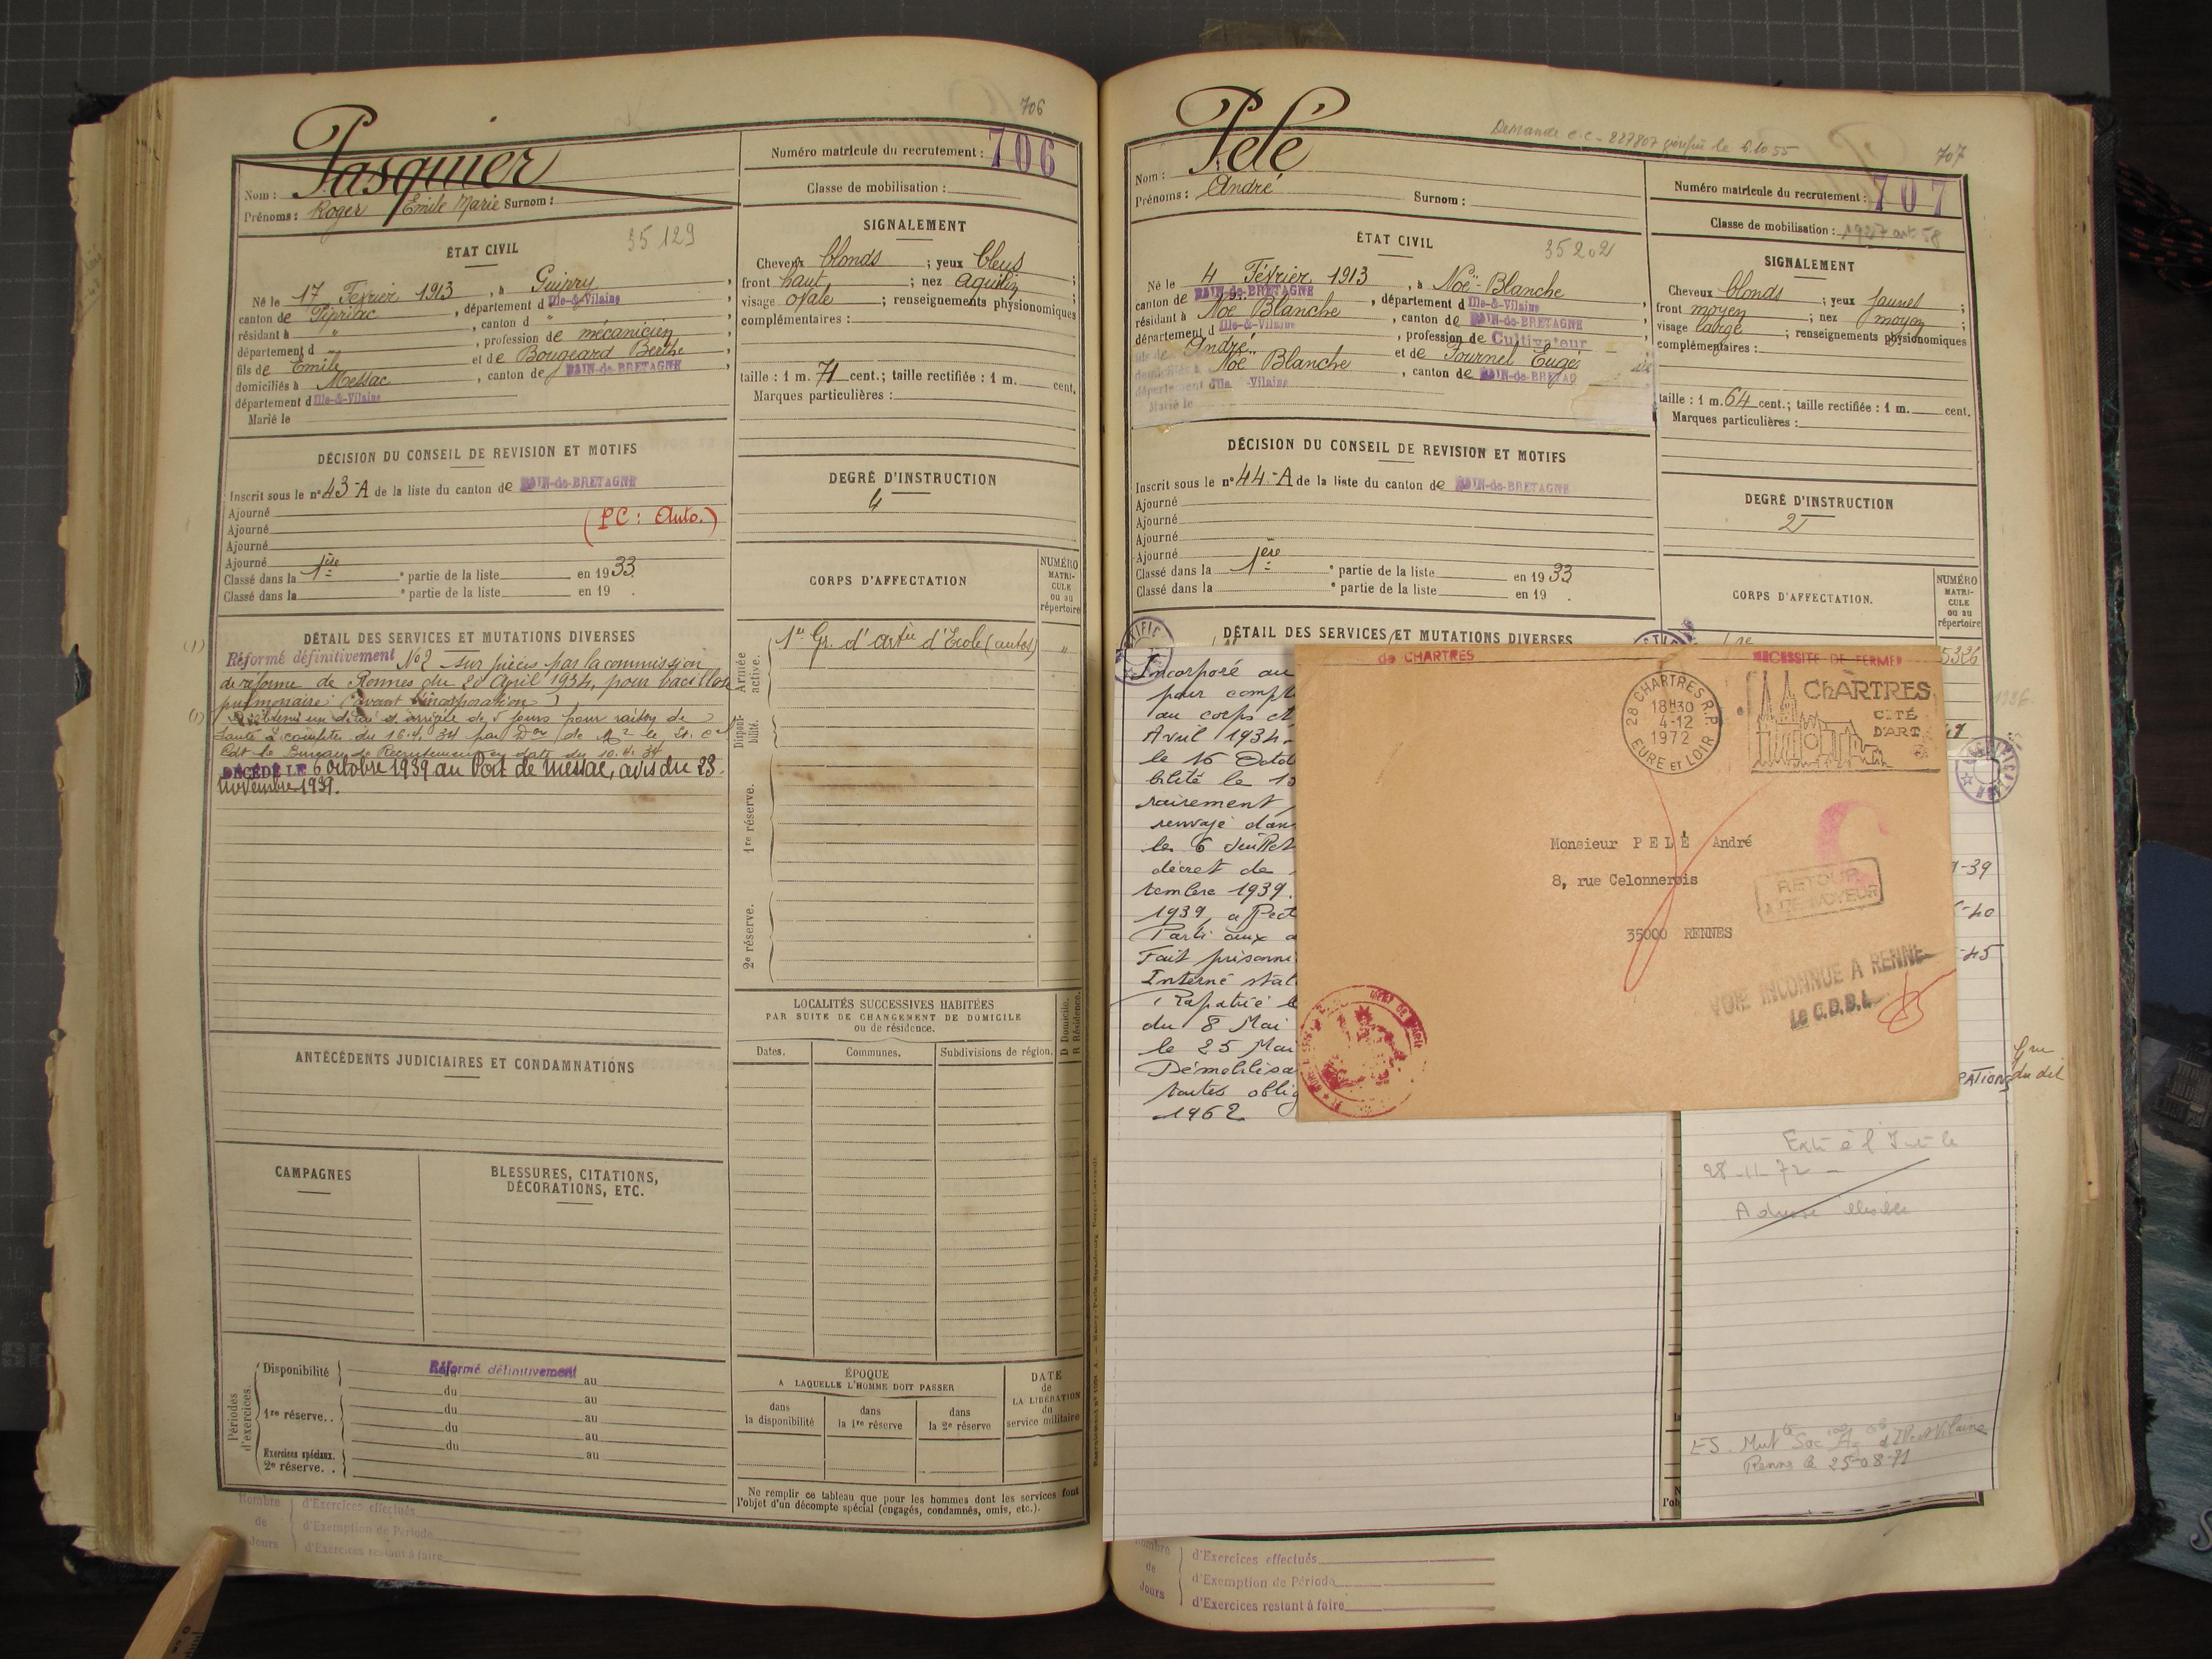 706
Pasquier
Nom :
Prénoms : Roger Emile Marie Surnom :
Numéro matricule du recrutement : 706
Classe de mobilisation :
ÉTAT CIVIL
35129
Né le 17 Février 1913, à Guipry,
canton de Pipriac, département d Ille-&-Vilaine
résidant à " , canton d "
département d " , profession de mécanicien,
fils de Emile et de Bougeard Berthe,
domiciliés à Messac, canton de BAIN-de-BRETAGNE
département d Ille-&-Vilaine
Marié le
SIGNALEMENT
Cheveux blonds ; yeux bleus ;
front haut ; nez aquilin ;
visage ovale ; renseignements physionomiques
complémentaires :
taille : 1 m. 71 cent. ; taille rectifiée : 1 m. cent.
Marques particulières :
DÉCISION DU CONSEIL DE REVISION ET MOTIFS
Inscrit sous le n° 43-A de la liste du canton de BAIN-de-BRETAGNE
Ajourné
(PC : Auto.)
Ajourné
Ajourné
Ajourné
Classé dans la 1ère partie de la liste en 1933.
Classé dans la e partie de la liste en 19 .
DEGRÉ D'INSTRUCTION
4
CORPS D'AFFECTATION
NUMÉRO MATRI-CULE ou au répertoire
Armée active.
1er Gr. d'artie d'Ecole (autos) "
Disponibilité.
1re réserve.
2e réserve.
DÉTAIL DES SERVICES ET MUTATIONS DIVERSES
(1) Réformé définitivement No 2 sur pièces par la commission
de réforme de Rennes du 20 April 1934, pour bacillose
pulmonaire (avant l'incorporation)
(1) obtenu un de 5 jours pour raison de
santé à compter du 16.4.34 par
Cdt le Bureau de Recrutement en date du 10.4.34
DÉCÉDÉ LE 6 octobre 1939 au Port de Messac, avis du 23
novembre 1939.
LOCALITÉS SUCCESSIVES HABITÉES
PAR SUITE DE CHANGEMENT DE DOMICILE
ou de résidence.
D Domicile.
R Résidence.
Dates. Communes. Subdivisions de région.
ANTÉCÉDENTS JUDICIAIRES ET CONDAMNATIONS
CAMPAGNES
BLESSURES, CITATIONS,
DÉCORATIONS, ETC.
Périodes d'exercices.
Disponibilité Réformé définitivement
du au
du au
1re réserve.. du au
du au
Exercices spéciaux. du au
2e réserve. .
ÉPOQUE
A LAQUELLE L'HOMME DOIT PASSER
dans la disponibilité
dans la 1re réserve
dans la 2e réserve
DATE de LA LIBÉRATION du service militaire
Ne remplir ce tableau que pour les hommes dont les services font
l'objet d'un décompte spécial (engagés, condamnés, omis, etc.).
Nombre de Jours
d'Exercices effectués
d'Exemption de Période
d'Exercices restant à faire
Demande c.c - 227807 le 6.10.55
707
Pelé
Nom :
Prénoms : André Surnom :
Numéro matricule du recrutement : 707
Classe de mobilisation : 1927 art 58
ÉTAT CIVIL
35202
Né le 4 Février 1913, à Noë-Blanche
canton de BAIN-de-BRETAGNE, département d Ille-&-Vilaine
résidant à Noë Blanche, canton de BAIN-de-BRETAGNE
département d Ille-&-Vilaine, profession de Cultivateur
fils de André et de Fournel
domiciliés à Noë Blanche, canton de BAIN-de-BRETAG
département d Ille-&-Vilaine
Marié le
SIGNALEMENT
Cheveux blonds ; yeux jaunes ;
front moyen ; nez moyen ;
visage large ; renseignements physionomiques
complémentaires :
taille : 1 m. 64 cent. ; taille rectifiée : 1 m. cent.
Marques particulières :
DÉCISION DU CONSEIL DE REVISION ET MOTIFS
Inscrit sous le n° 44-A de la liste du canton de BAIN-de-BRETAGNE
Ajourné
Ajourné
Ajourné
Ajourné
Classé dans la 1ère partie de la liste en 1933
Classé dans la e partie de la liste en 19 .
DEGRÉ D'INSTRUCTION
2
CORPS D'AFFECTATION.
NUMÉRO MATRI-CULE ou au répertoire
DÉTAIL DES SERVICES ET MUTATIONS DIVERSES
Incorporé au
pour compt
au corps et
Avril 1934
le 16 Octo
bilité le 15
rairement
renvoyé dans
le 6 Juillet
décret de
tembre 1939.
1939, affect
Parti aux a
Fait prisonni
Interné stal
Rapatrié le
du 8 Mai
le 25 Mai
Démobilisa
toutes oblig
1962
de CHARTRES
NÉCESSITÉ DE FERMER
28 CHARTRES R.P.
18H30
4-12
1972
EURE ET LOIR
CHARTRES
CITÉ
D'ART
Monsieur PELÉ André
8, rue Celonnerois
35000 RENNES
RETOUR
A L'ENVOYEUR
VOIE INCONNUE A RENNE
Le C.D.B.L.
5326
1936
-39
-40
-45
PATIONS
du dit
28-11-72 -
ES. Mut Soc Ag d'Ille et Vilaine
Rennes le 25-08-71
Nombre de Jours
d'Exercices effectués
d'Exemption de Période
d'Exercices restant à faire